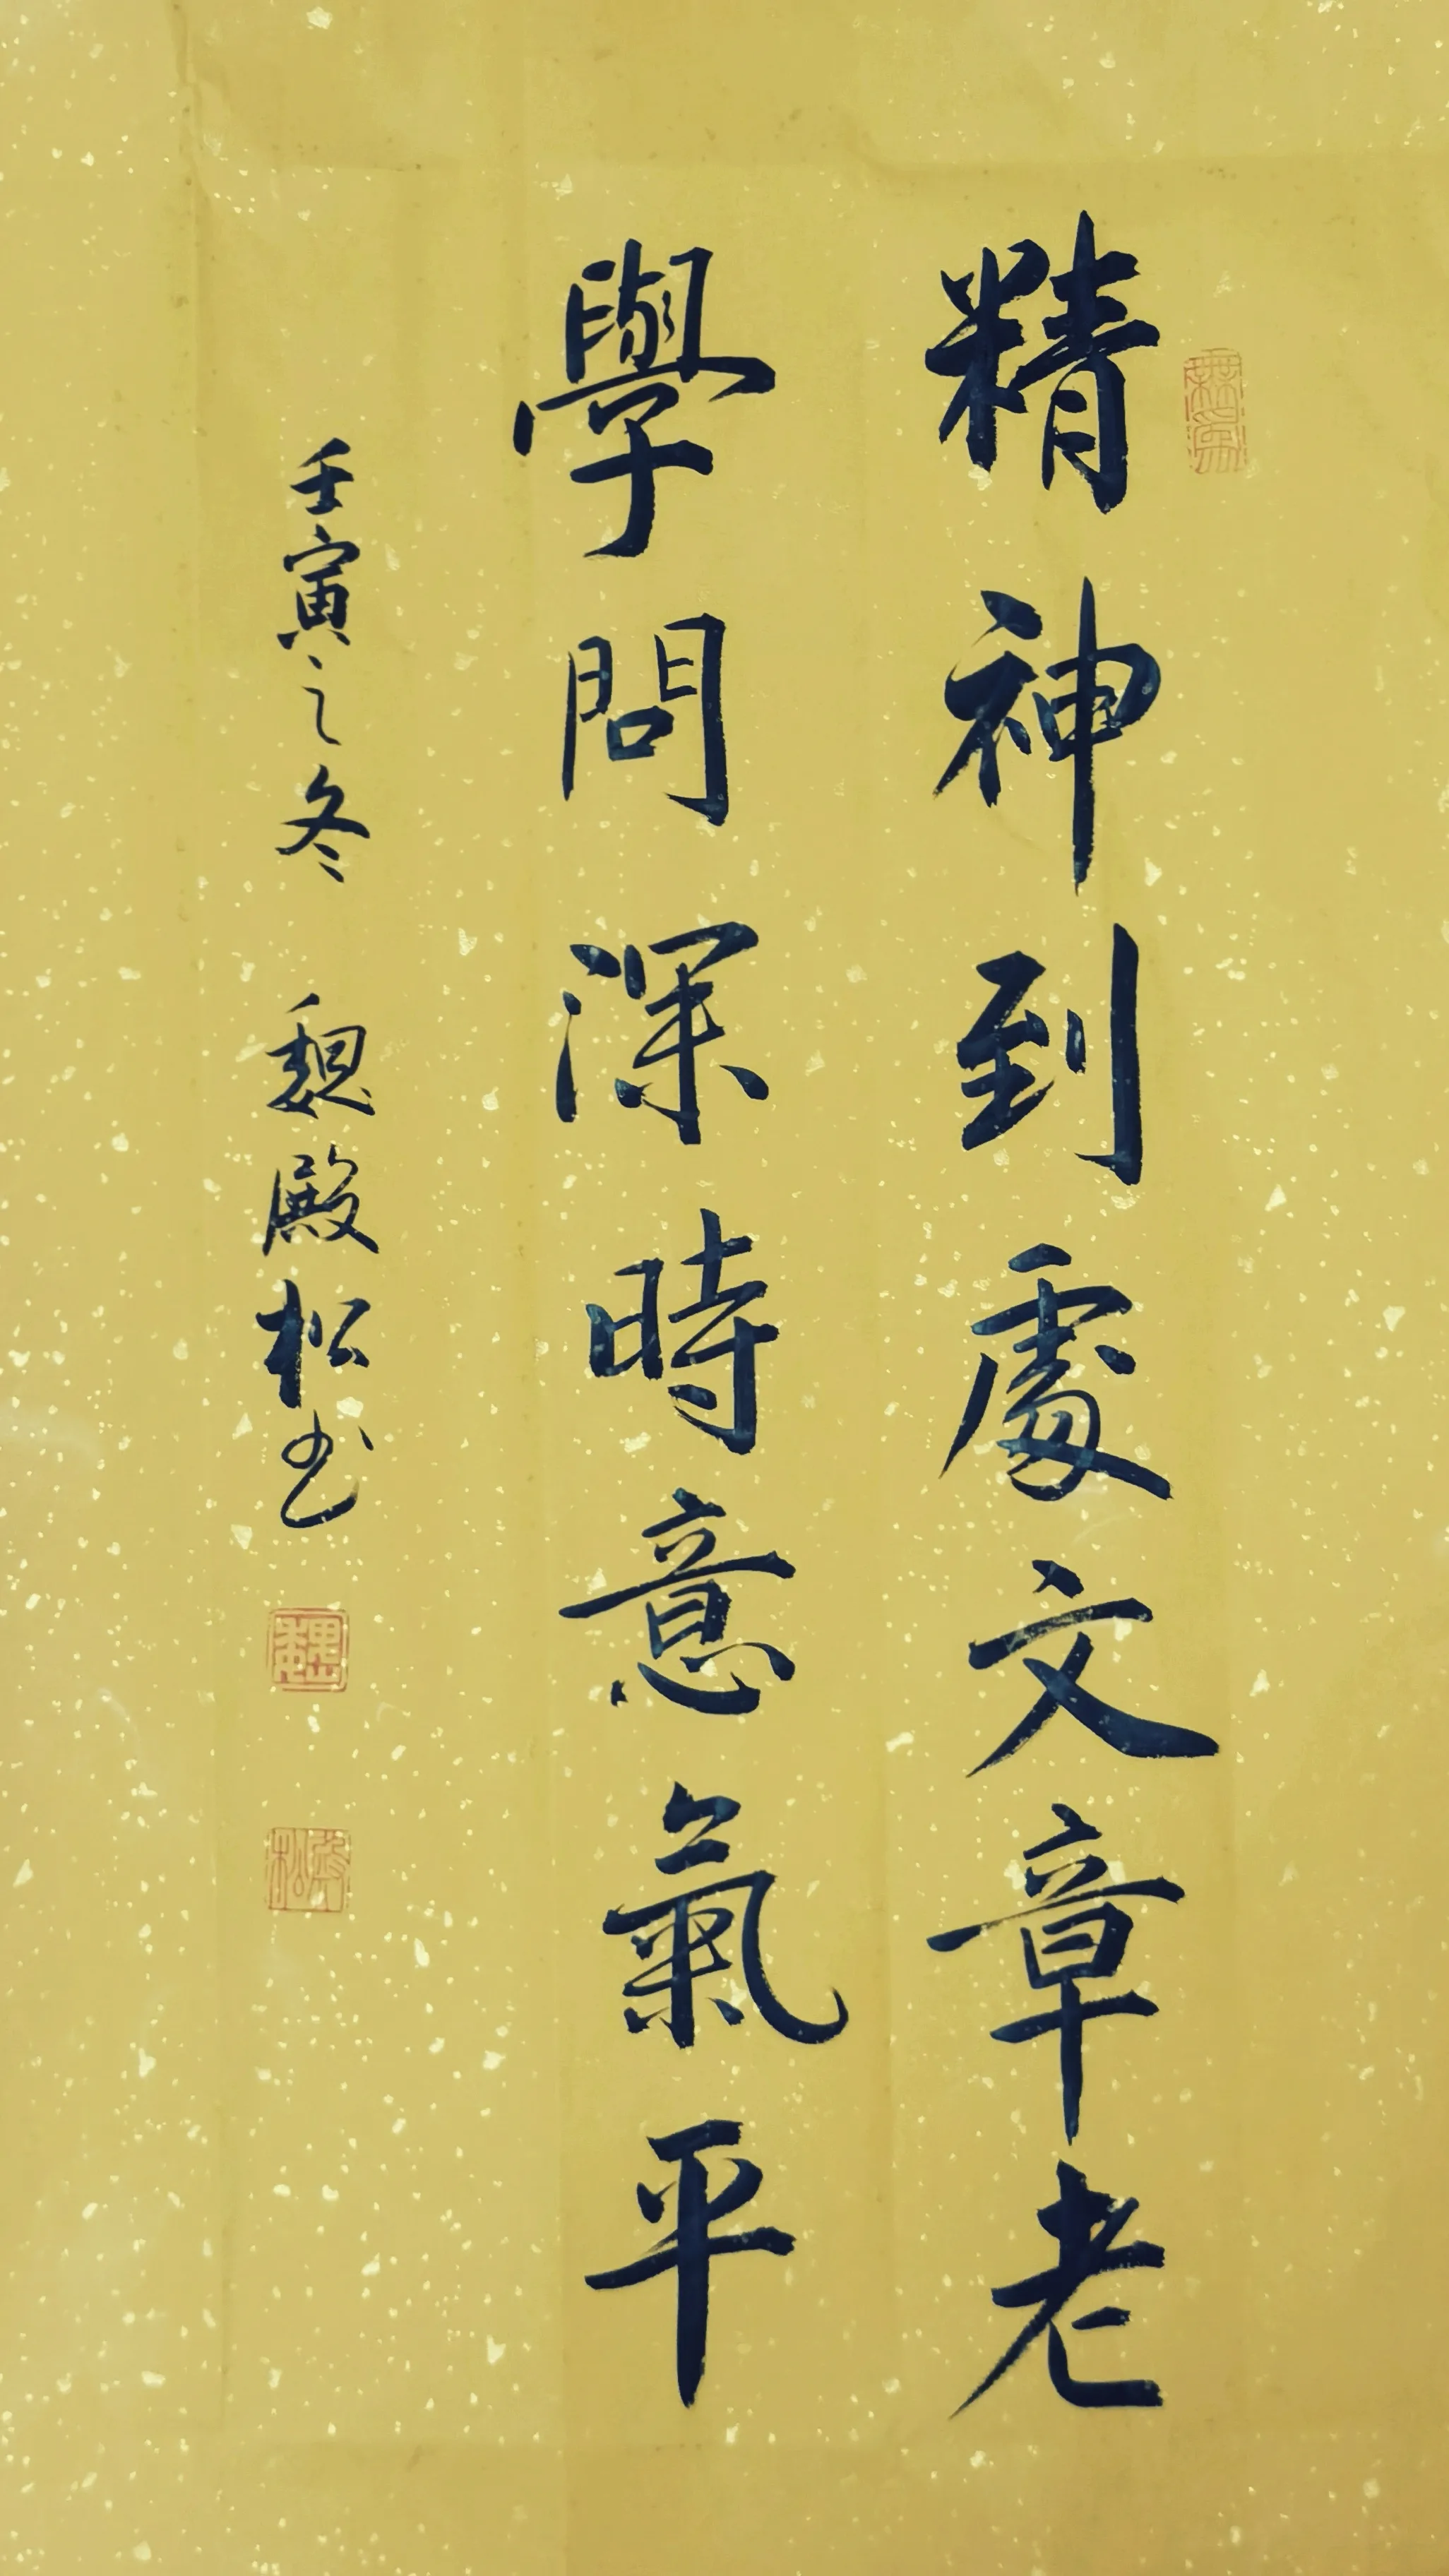 精神到處文章老
學問深時意氣平
壬寅之冬 魏殿松书